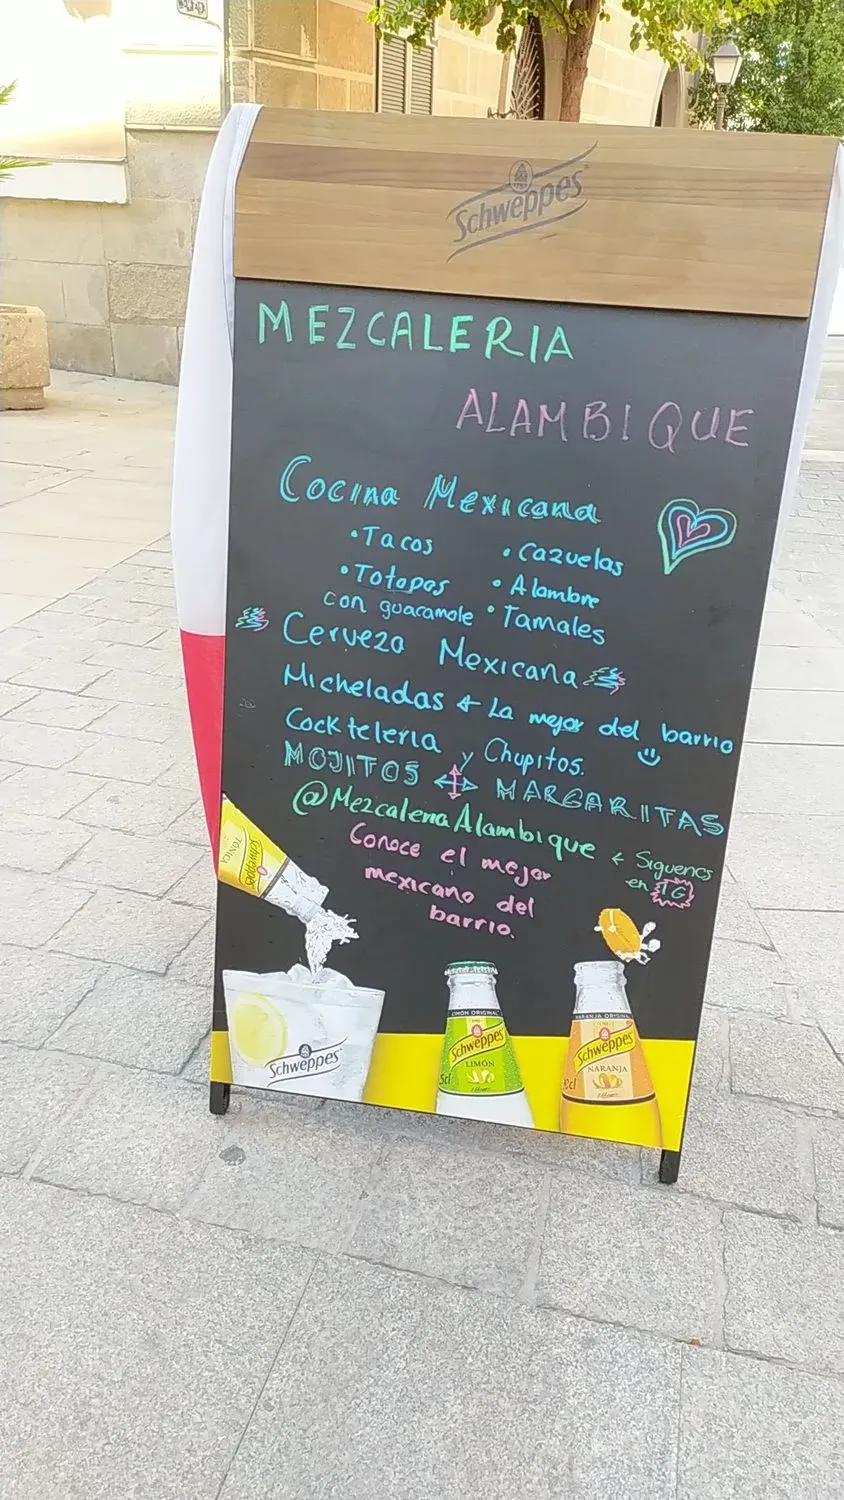 Schweppes
MEZCALERIA
ALAMBIQUE
Cocina Mexicana
• Tacos • Cazuelas
• Totopos • Alambre
con guacamole • Tamales
Cerveza Mexicana
Micheladas ← La mejor del barrio
Cockteleria y Chupitos.
MOJITOS MARGARITAS
@MezcaleriaAlambique ← Siguenos
en IG
Conoce el mejor
mexicano del
barrio.
Schweppes
TÓNICA
Schweppes
LIMÓN ORIGINAL
Schweppes
LIMÓN
NARANJA ORIGINAL
Schweppes
NARANJA